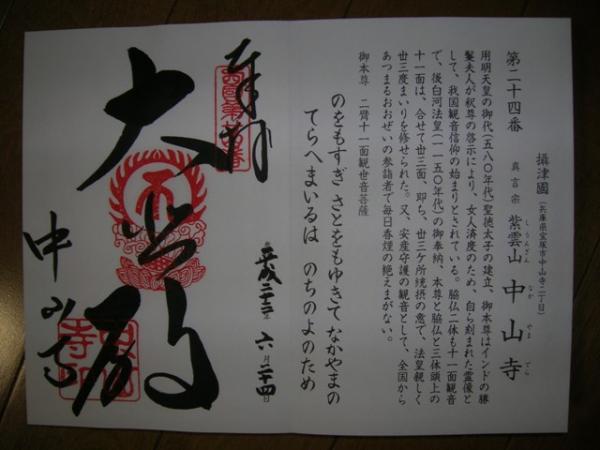 第二十四番
攝津國（兵庫県宝塚市中山寺二丁目）
真言宗 紫雲山 中山寺
しうんざん なか やま でら
用明天皇の御代（五八〇年代）聖徳太子の建立、御本尊はインドの勝
鬘夫人が釈尊の啓示により、女人済度のため、自ら刻まれた霊像と
して、我国観音信仰の始まりとされている。脇仏二体も十一面観音
で、後白河法皇（一一五〇年代）の御奉納、本尊と脇仏と三体頭上の
十一面は、合せて丗三面、即ち、丗三ケ所統摂の意で、法皇親しく
丗三度まいりを修せられた。又、安産守護の観音として、全国から
あつまるおおぜいの参詣者で毎日香煙の絶えまがない。
御本尊 二臂十一面観世音菩薩
のをもすぎ さとをもゆきて なかやまの
てらへまいるは のちのよのため
奉拝
平成二十二年 六月二十四日
大悲殿
中山寺